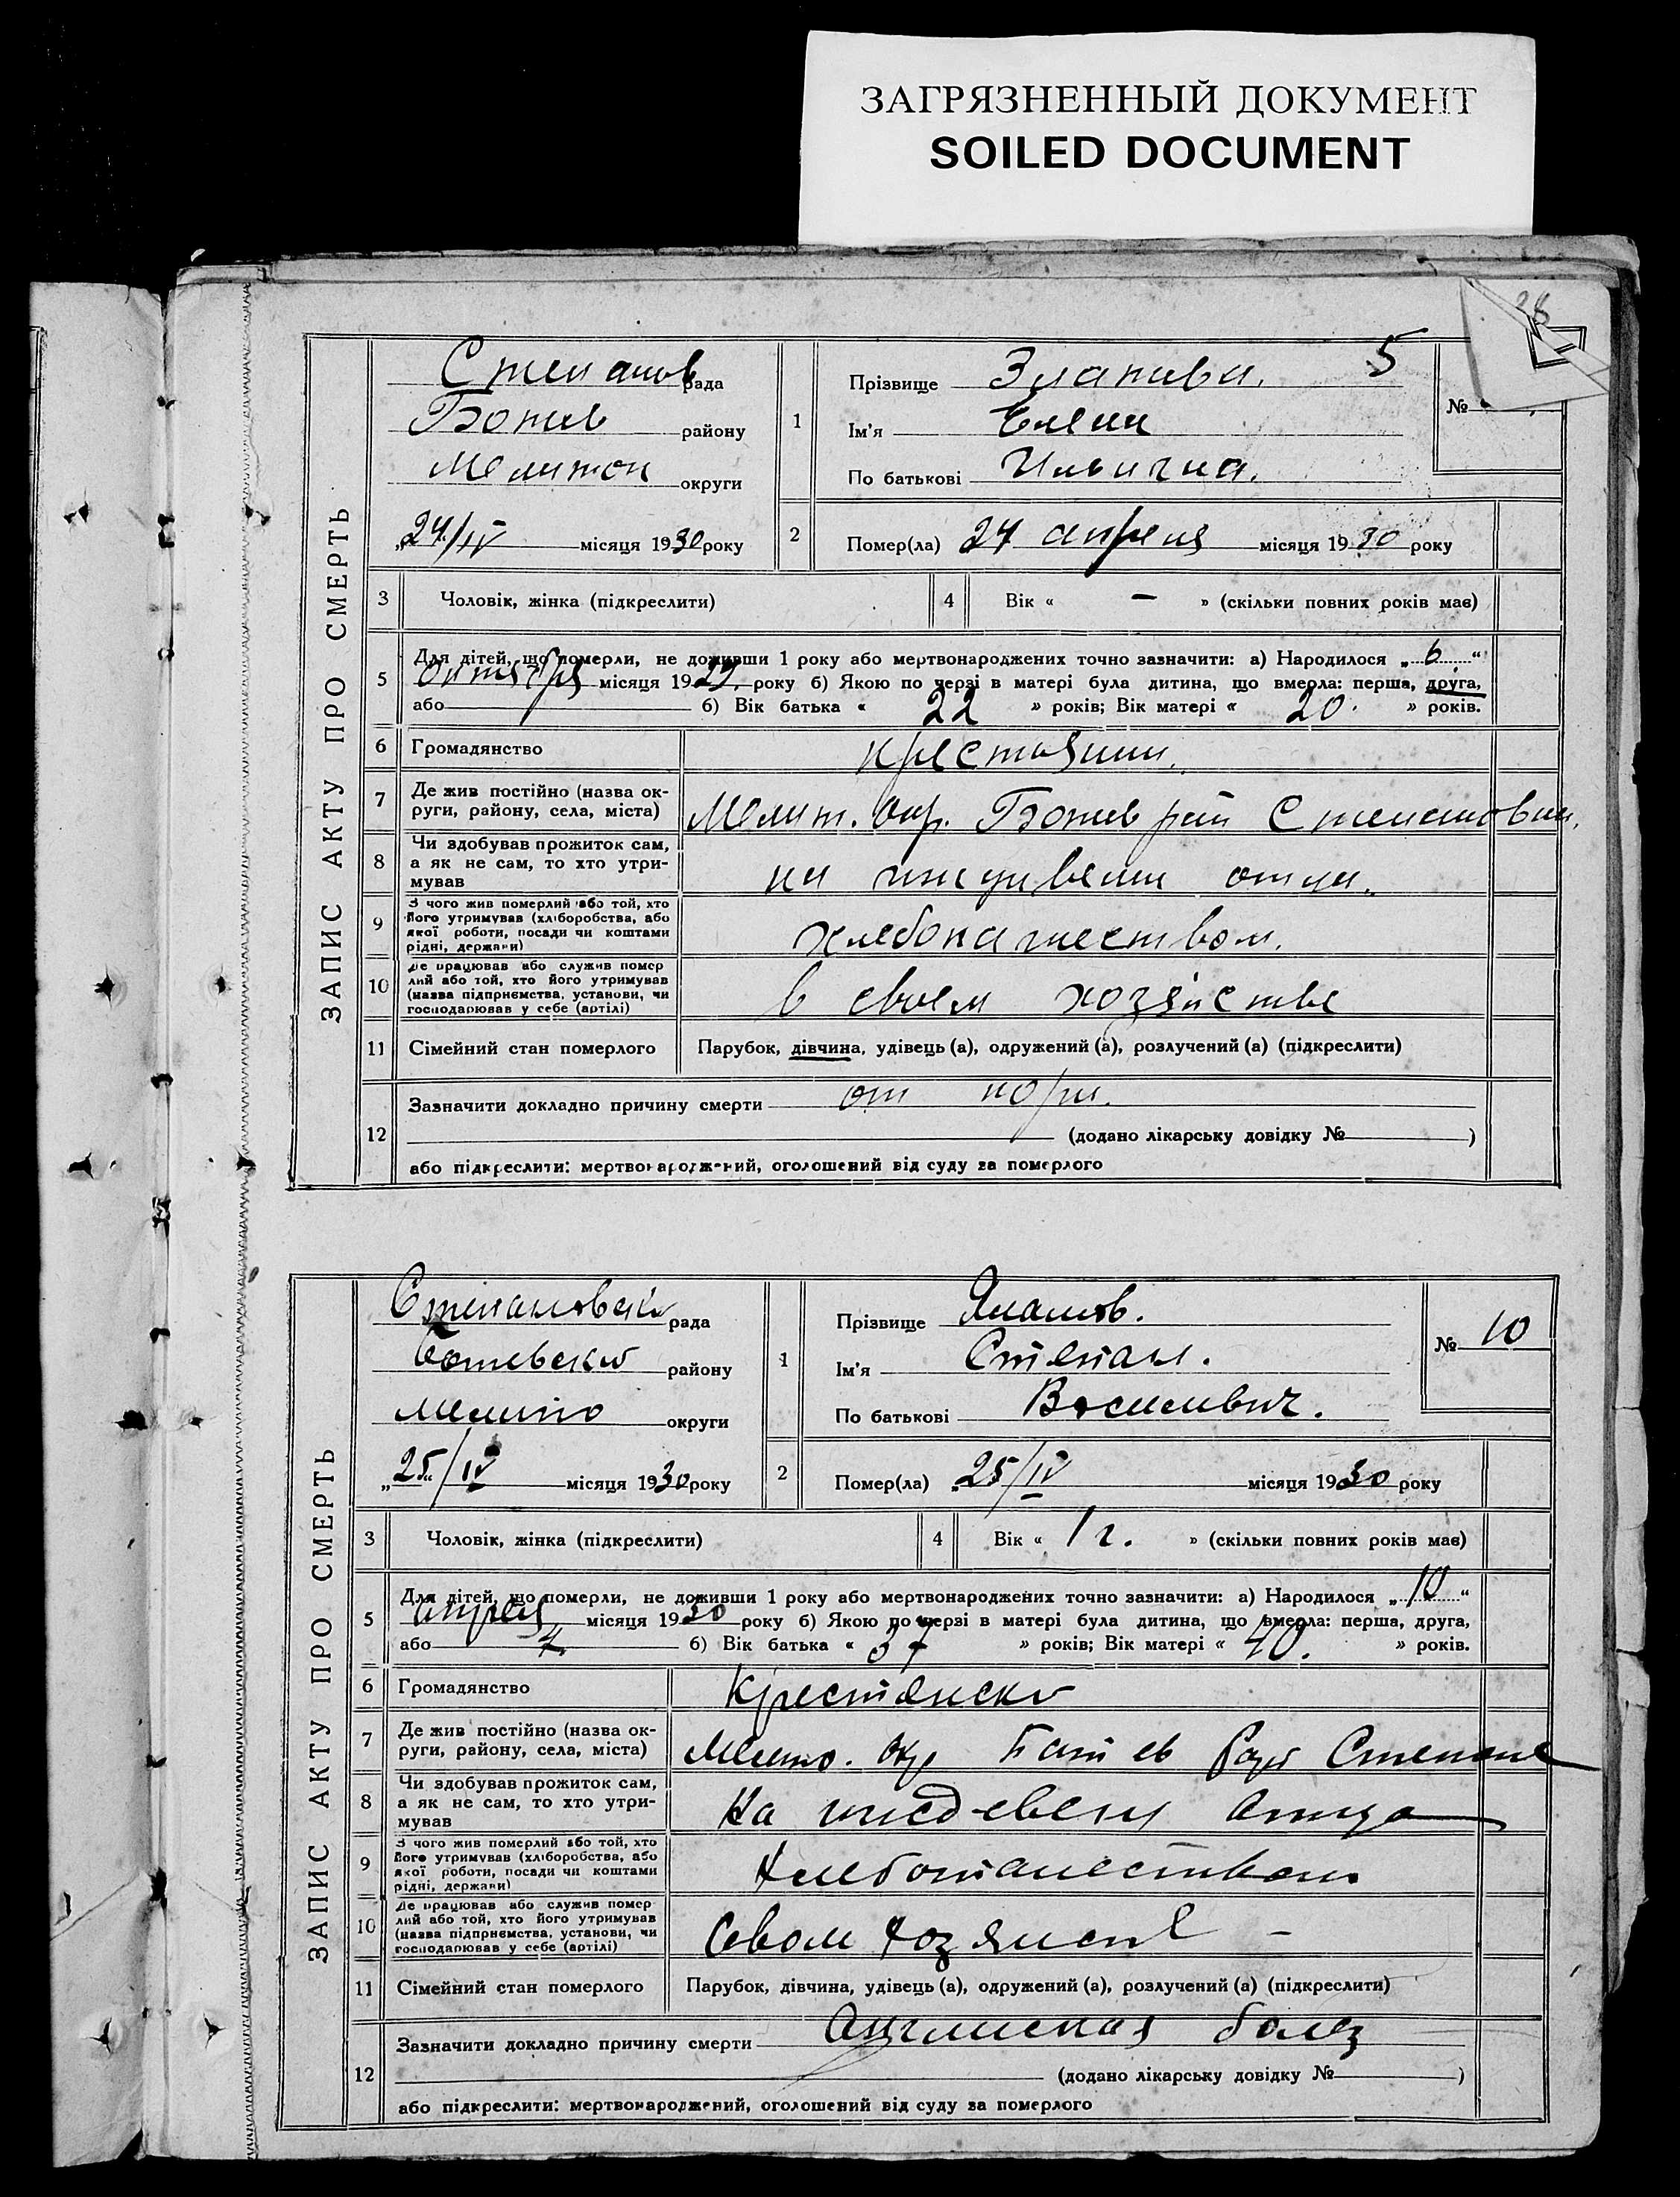 ЗАГРЯЗНЕННЫЙ ДОКУМЕНТ
SOILED DOCUMENT
ЗАПИС АКТУ ПРО СМЕРТЬ
Степанов рада
Ботев району
Мелитоп округи
„24/IV місяця 1930 року
1
Прізвище Златева. 5
Ім'я Елена
По батькові Ильична.
№
2 Помер(ла) 24 апреля місяця 1930 року
3 Чоловік, жінка (підкреслити) 4 Вік « — » (скільки повних років має)
5 Для дітей, що померли, не доживши 1 року або мертвонароджених точно зазначити: а) Народилося „6.“
октября місяця 1929. року б) Якою по черзі в матері була дитина, що вмерла: перша, друга,
або б) Вік батька « 22 » років; Вік матері « 20. » років.
6 Громадянство крестьянин.
7 Де жив постійно (назва ок-
руги, району, села, міста) Мелит. окр. Ботев рай Степановки.
8 Чи здобував прожиток сам,
а як не сам, то хто утри-
мував на иждивении отца.
9 З чого жив померлий або той, хто
його утримував (хліборобства, або
якої роботи, посади чи коштами
рідні, держави) хлебопашеством.
10 Де працював або служив помер
лий або той, хто його утримував
(назва підприємства, установи, чи
господарював у себе (артілі) в своем хозяйстве
11 Сімейний стан померлого Парубок, дівчина, удівець (а), одружений (а), розлучений (а) (підкреслити)
12 Зазначити докладно причину смерти от кори.
(додано лікарську довідку № )
або підкреслити: мертвонароджений, оголошений від суду за померлого
ЗАПИС АКТУ ПРО СМЕРТЬ
Степановски рада
Ботевски району
Мелито округи
„25“/IV місяця 1930 року
1
Прізвище
Ім'я Степан.
По батькові Василевич.
№ 10
2 Помер(ла) „25/IV місяця 1930 року
3 Чоловік, жінка (підкреслити) 4 Вік « 1 г. » (скільки повних років має)
5 Для дітей, що померли, не доживши 1 року або мертвонароджених точно зазначити: а) Народилося „10“
апреля місяця 1930 року б) Якою по черзі в матері була дитина, що вмерла: перша, друга,
або 7 б) Вік батька « 37 » років; Вік матері « 40. » років.
6 Громадянство Крестянски
7 Де жив постійно (назва ок-
руги, району, села, міста) Мелито. окр Ботев Степане
8 Чи здобував прожиток сам,
а як не сам, то хто утри-
мував На отца
9 З чого жив померлий або той, хто
його утримував (хліборобства, або
якої роботи, посади чи коштами
рідні, держави) Хлебопашеством
10 Де працював або служив помер
лий або той, хто його утримував
(назва підприємства, установи, чи
господарював у себе (артілі) Свом хозяйст –
11 Сімейний стан померлого Парубок, дівчина, удівець (а), одружений (а), розлучений (а) (підкреслити)
12 Зазначити докладно причину смерти Англиская болез
(додано лікарську довідку № )
або підкреслити: мертвонароджений, оголошений від суду за померлого